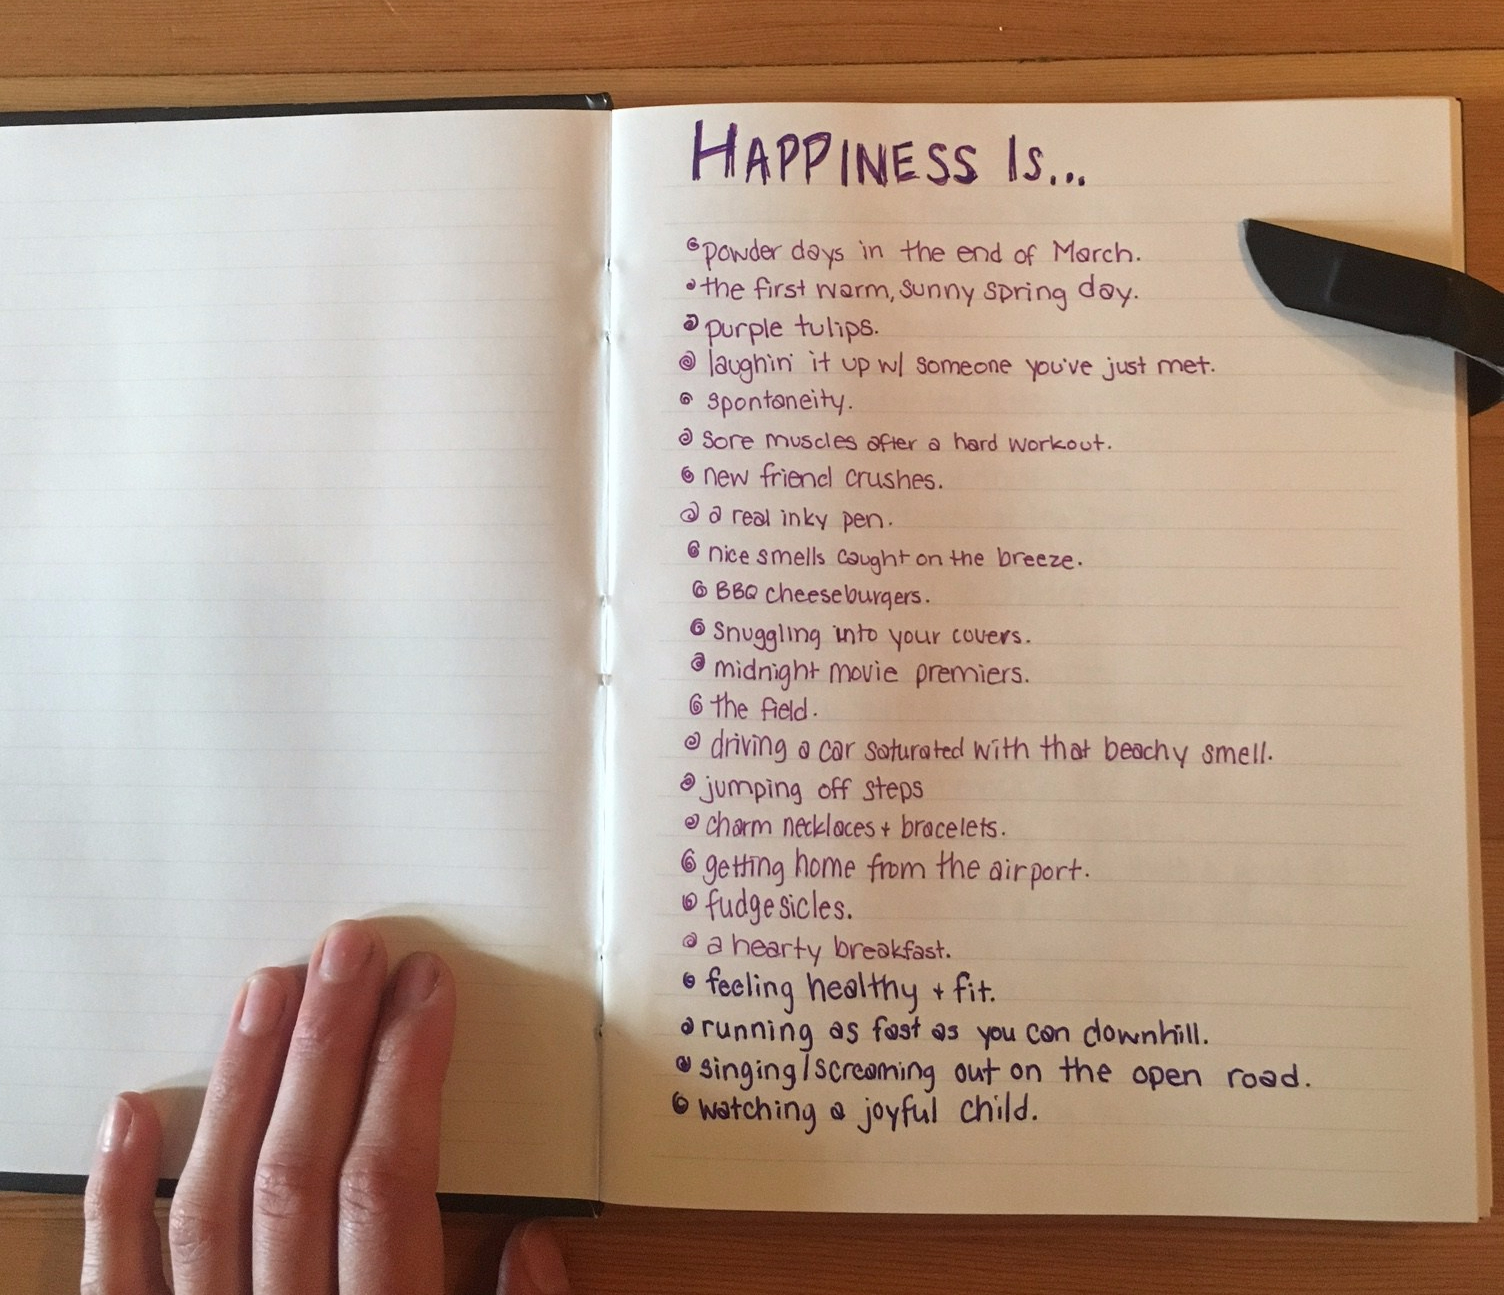 HAPPINESS IS...
powder days in the end of March.
the first warm, sunny spring day.
purple tulips.
laughin' it up w/ someone you've just met.
spontaneity.
sore muscles after a hard workout.
new friend crushes.
a real inky pen.
nice smells caught on the breeze.
BBQ cheeseburgers.
snuggling into your covers.
midnight movie premiers.
the field.
driving a car saturated with that beachy smell.
jumping off steps
charm necklaces + bracelets.
getting home from the airport.
fudgesicles.
a hearty breakfast.
feeling healthy + fit.
running as fast as you can downhill.
singing/screaming out on the open road.
watching a joyful child.